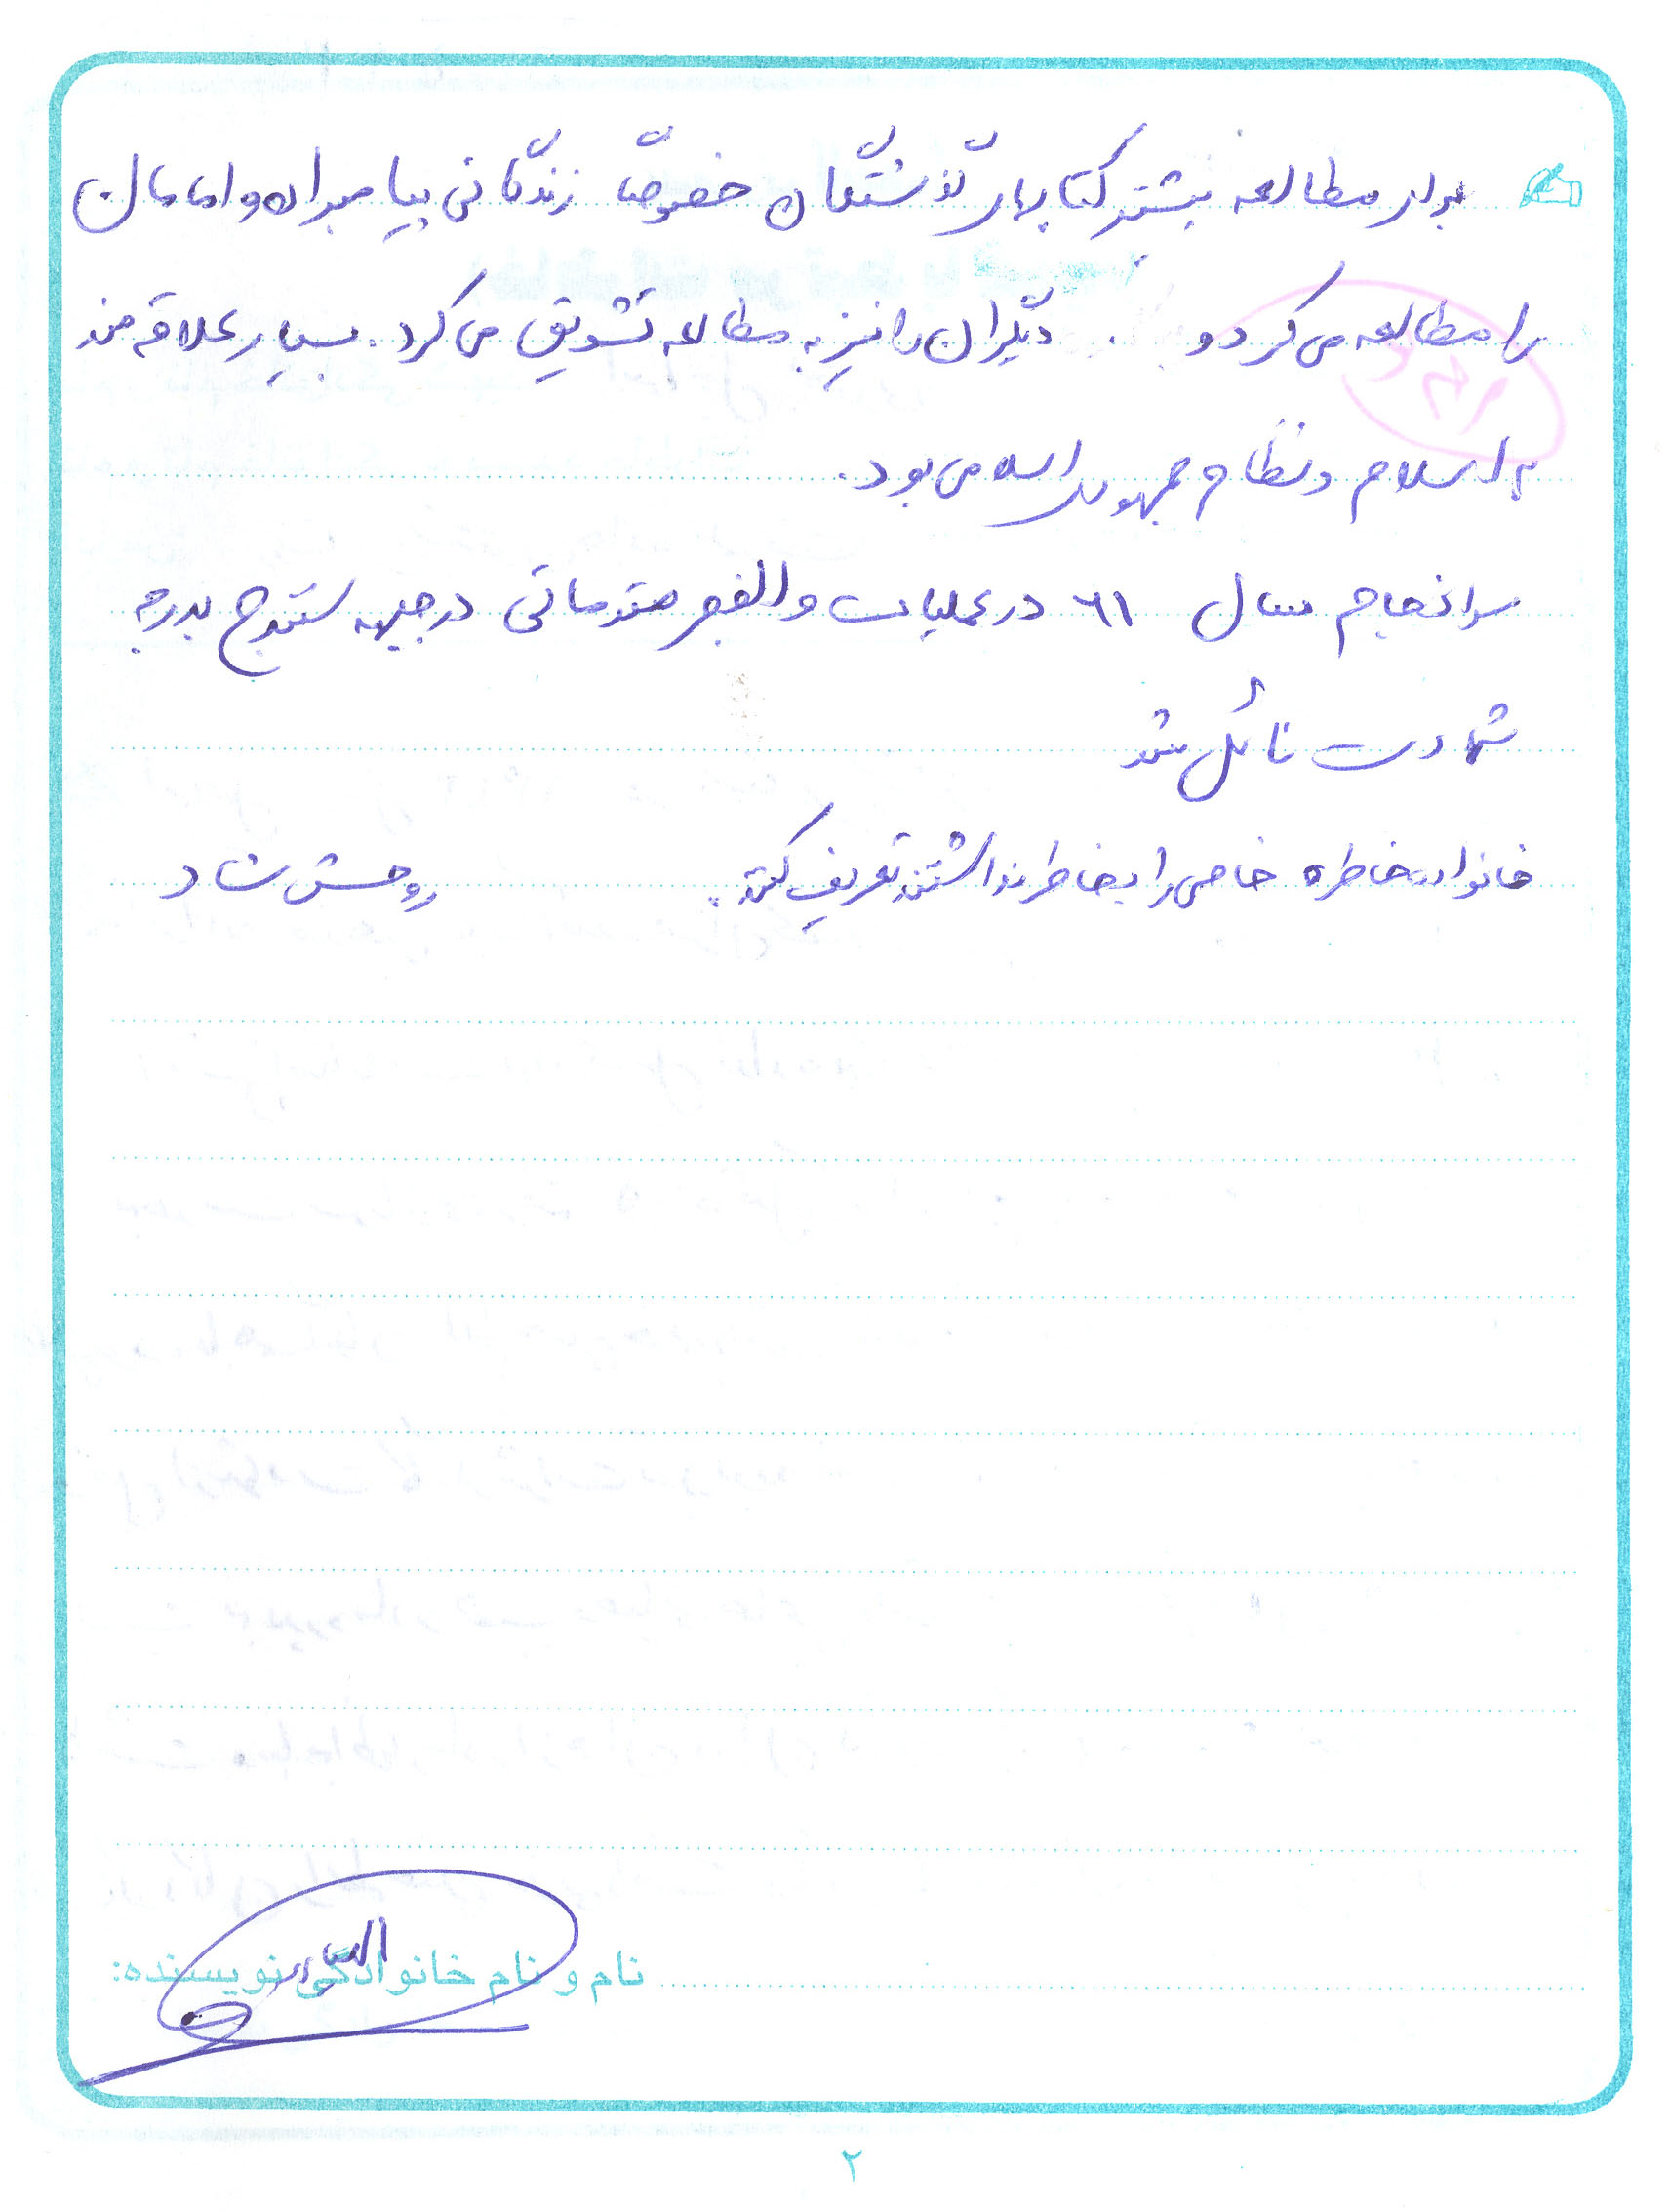 برای مطالعه بیشتر کتابهای گذشتگان خصوصاً زندگانی پیامبران و امامان
را مطالعه می کرد و . دیگران را نیز به مطالعه تشویق می کرد. بسیار علاقه مند
به اسلام و نظام جمهوری اسلامی بود.
سرانجام سال ۶۱ در عملیات والفجر مقدماتی در جبهه بدرجه
شهادت نائل شد
خانواده خاطره خاصی را بخاطر نداشتند تعریف کنند. روحش شاد
نام و نام خانوادگی نویسنده:
۲